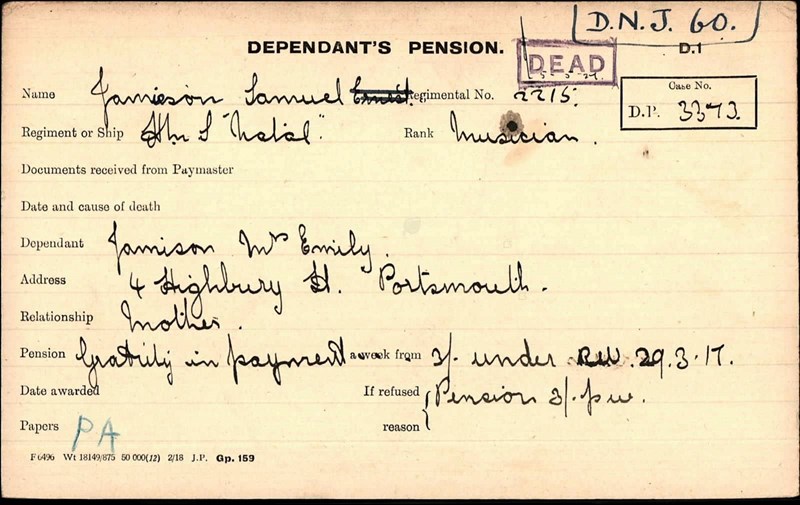 D.N.J. 60.
DEPENDANT'S PENSION. D.1
DEAD
Name Jamieson Samuel Ernest Regimental No. 2215. Case No.
D.P. 3373.
Regiment or Ship HM S "Natal". Rank Musician.
Documents received from Paymaster
Date and cause of death
Dependant Jamison Mrs Emily.
Address 4 Highbury St. Portsmouth.
Relationship Mother.
Pension Gratuity in payment a week from 3/- under 29.3.17.
Date awarded If refused reason Pension 3/- p w.
Papers PA
F 6496 Wt 18149/875 50 000(12) 2/18 J.P. Gp. 159